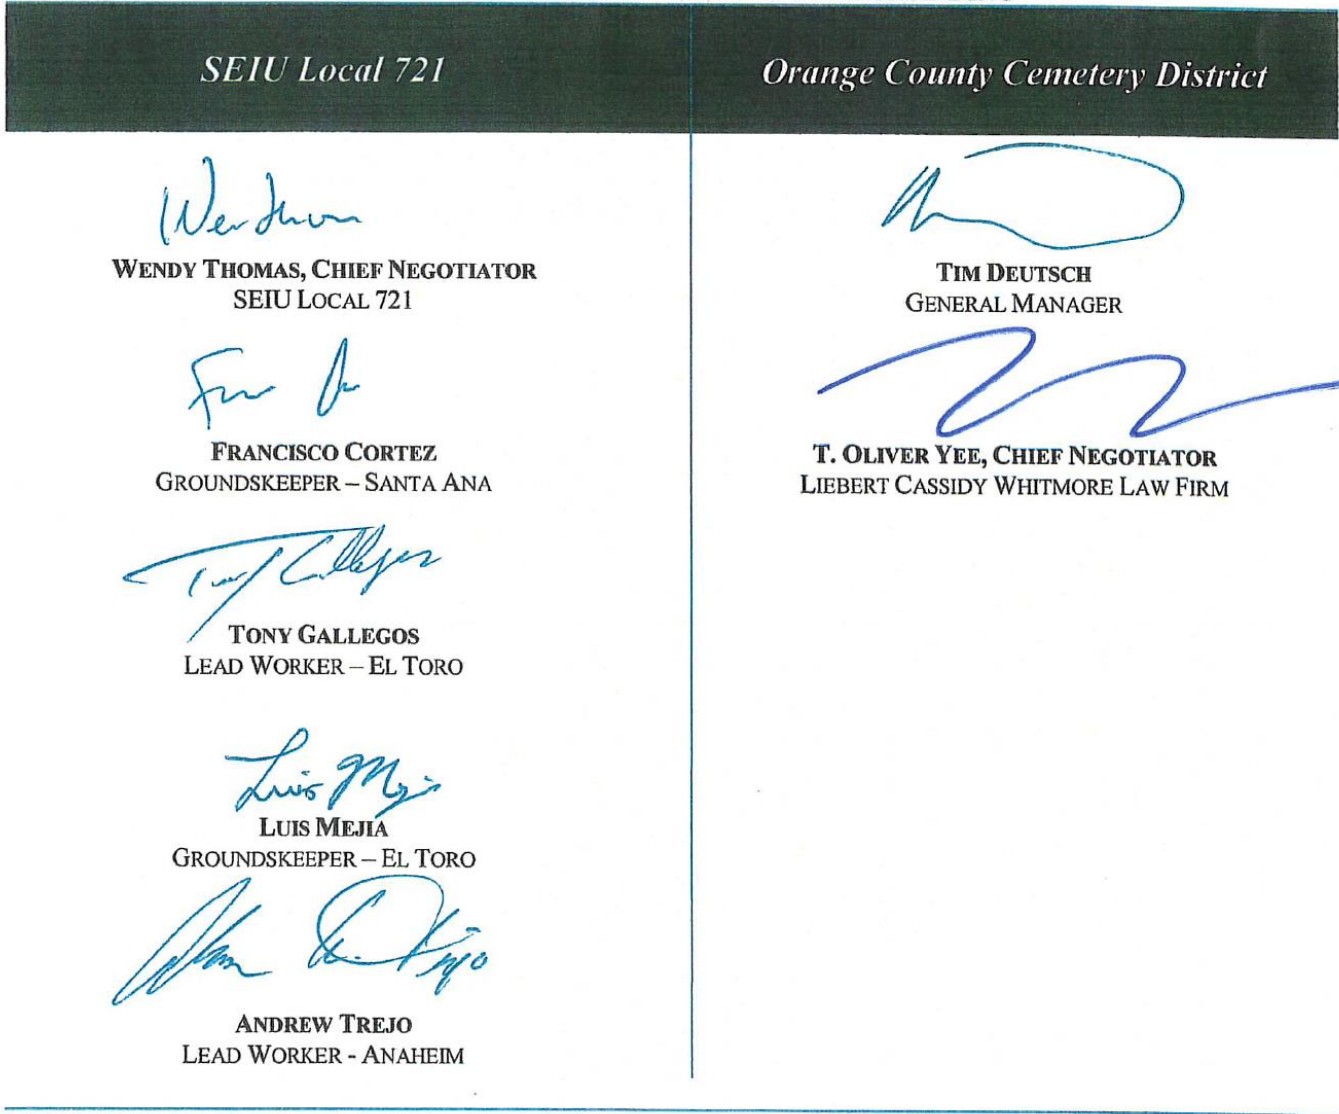 SEIU Local 721
WENDY THOMAS, CHIEF NEGOTIATOR
SEIU LOCAL 721
FRANCISCO CORTEZ
GROUNDSKEEPER – SANTA ANA
Tony Gallegos
TONY GALLEGOS
LEAD WORKER – EL TORO
Luis Mejia
LUIS MEJIA
GROUNDSKEEPER – EL TORO
ANDREW TREJO
LEAD WORKER - ANAHEIM
Orange County Cemetery District
TIM DEUTSCH
GENERAL MANAGER
T. OLIVER YEE, CHIEF NEGOTIATOR
LIEBERT CASSIDY WHITMORE LAW FIRM